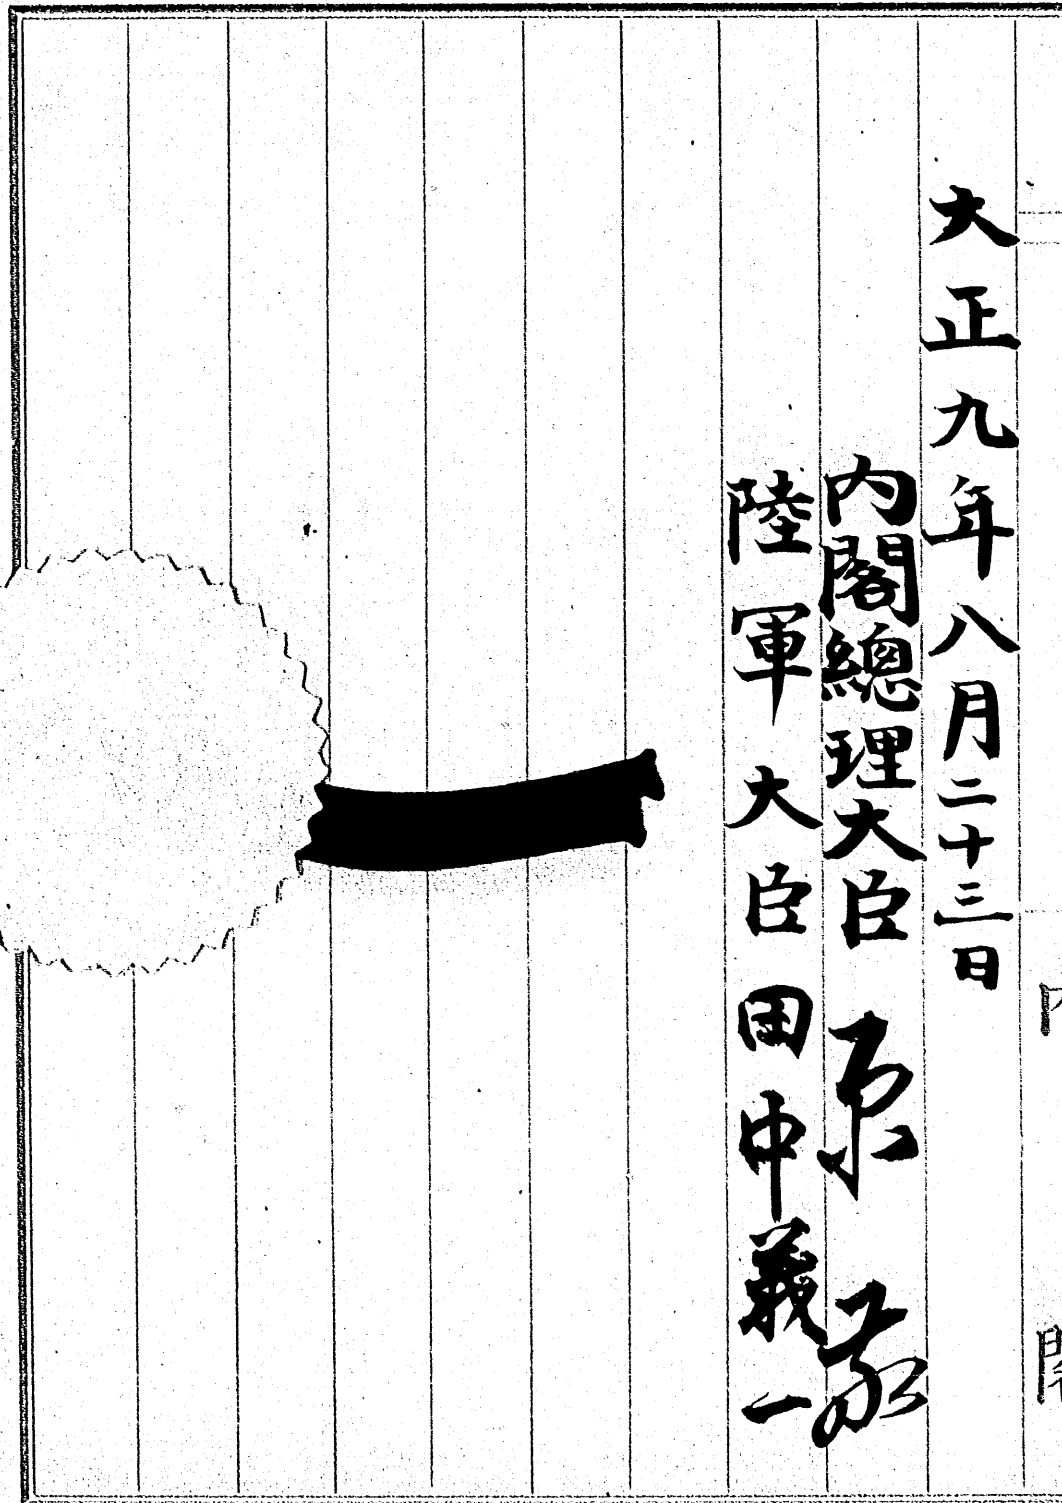 大正九年八月二十三日
内閣總理大臣 原敬
陸軍大臣 田中義一
内閣